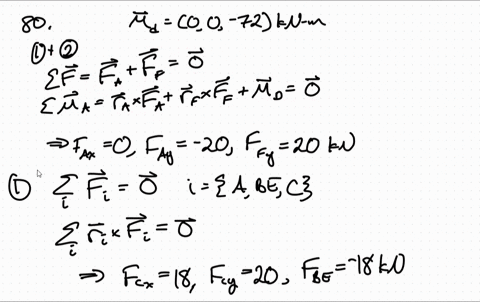 80. M⃗_d = (0, 0, -72) kN-m
①+②
ΣF⃗ = F⃗_A + F⃗_F = 0⃗
ΣM⃗_A = r⃗_A × F⃗_A + r⃗_F × F⃗_F + M⃗_D = 0⃗
⇒ F_Ax = 0, F_Ay = -20, F_Fy = 20 kN
① Σ_i F⃗_i = 0⃗ i = {A, BE, C}
Σ_i r⃗_i × F⃗_i = 0⃗
⇒ F_Cx = 18, F_Cy = 20, F_BE = -18 kN